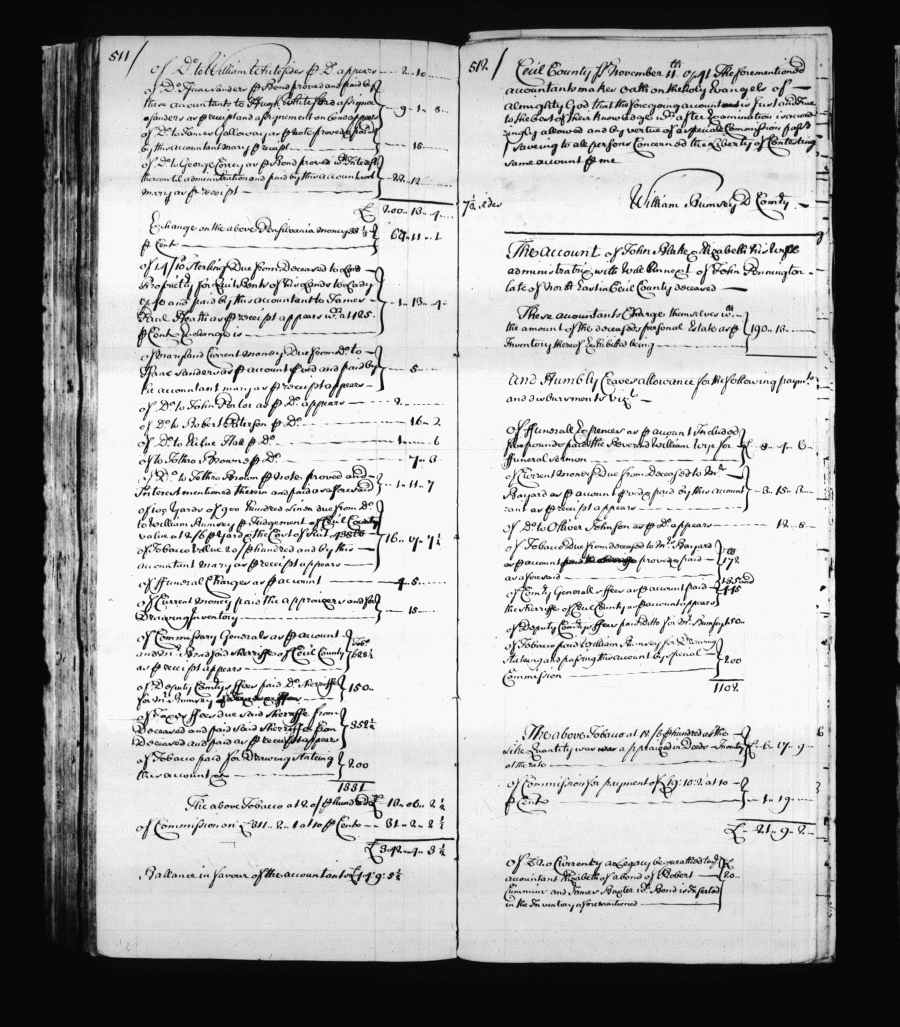 511/
of Do to William Whitesides p Do appears — 2 - 10 ....
of Do Isaac Sanders p Bond proved and paid by
these accountants to Hugh Whiteford assignee
of Sanders as p receipt and assignment on bond appears } - 9 - 1 - 8 ...
of Do to James Galloway as p note proved & paid
by this accountant mary p receipt } — 15 ....
of Do to George Corry as p Bond proved wth Interest
and paid by this accountant
mary as p receipt } — 22 - 12 ....
£ 200 - 13 - 4 ....
Exchange on the above Pensilvania money 33 1/3
p Cent } 67 - 11 - 1
Sterling Due from Deceased to Lord
Proprietr for Quit Rents of his Lands to Lady
and paid by this accountant to James
Paul Heath as p receipt appears wth at 185
p Cent Exchange is } - 1 - 13 - 4
of maryland Current money Due from Do to
Isaac Sanders as p account proved and paid by
the accountant mary as p receipt appears } — 5 ....
of Do to John as p Do appears — 2 ....
of Do to Robert Peterson p Do — 16 - 2
of Do to Hall p Do — 1 — 6
of to Jethro Browne p Do — 7 - 6
of Do to Jethro Brown p note proved and
Interest mentioned therein and paid as aforesaid } - 1 - 11 - 7
Yards of 900 hundred Linen due from Do
to William Rumsey p Judgement of Cecil County
value at 2/6 p Yard & the Cost of Suit
of Tobacco Value 20/ p hundred and by this
accountant mary as p receipt appears } 16 - 0 - 7 1/2
of ffunerall Charges as p account — 4 - 5 ....
of Current money paid the appraizers and for
Drawing Inventory } — 15 ....
of Commissary Generals as p account
and Mr Bond paid Sherriffe of Cecil County
as p receipt appears } Tobo 628 1/2
of Deputy Comrys ffees paid Do Sherriffe
for Mr Rumsey } 150 ..
of ffees due said Sherriffe from
Deceased and paid said Sherriffe from
Deceased and paid as p receipt appears } 352 1/2
of Tobacco paid for Drawing Stateing
this account &c } 200
1331
The above Tobacco at 20/ p hundred £ 13 - 06 - 2 1/2
of Commission on £311 - 2 - 1 at 10 p Cento — 31 - 2 - 2 1/2
£342 - 4 - 3 1/2
Ballance in favour of the accountants £14 : 9 : 5 1/2
512/
Cecil County ss November 11th 1741 The forementioned
accountants makes oath on the holy Evangels of —
almighty God that the foregoing account is Just and True
to the best of their knowledge wch after Examination is accord
ingly allowed and by vertue of a speciall Commission past
Saveing to all persons Concerned the Liberty of Contesting
same account p me
William Rumsey D Comry —
The account of John Blake & Elizabeth his wife
administratrix with Will Annext of John Pennington
late of North East in Cecil County deceased —
These accountants Charge themselves wth
the amount of the deceaseds personal Estate as p
Inventory thereof Exhibitted being } 190 - 18 ....
And Humbly Craves allowance for the following paymts
and disbursments Vizt —
of ffunerall Expences as p account Included
five pounds paid the Reverend William Wye for
ffuneral sermon } £ - 8 - 4 - 6
of Current money Due from Deceased to Mr
Bayard as p account proved & paid by this account
tant as p receipt appears } - 3 - 15 - 1
of Do to Olliver Johnson as p Do appears — 12 - 8
of Tobacco Due from deceased to Mr Bayard
as p account proved & paid
as aforesaid } Tob 178
of Comry Generalls ffees as p account paid
the Sherriffe of Cecil County as p account appears } 445
of Deputy Comrys ffees paid ditto for Mr Rumsey 150 ..
of Tobacco paid William Rumsey for Drawing
Stateing and passing this account by special
Commission } 200
1108
The above Tobacco at 12/6 p hundred as the
like Quantity was appraized in Deceds Inventy
at the rate } £ - 6 - 17 - 9
of Commission for payment of £19 : 10 : 2 at 10
p Cento } - 1 - 19 ....
£ - 21 - 9 - 2 —
of £20 Currency a Legacy bequeathed to the
accountant Elizabeth of a bond of Robert
Cummins and James Baxter wch Bond is Inserted
in the Inventory aforementioned } £ 20 ..